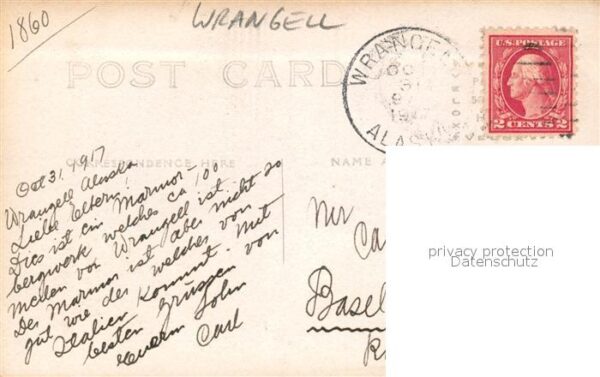 1860
WRANGELL
POST CARD
WRANGELL
OC
ALASKA
U.S. POSTAGE
2 CENTS 2
CORRESPONDENCE HERE
NAME A
Oct 31, 1917
Wrangell Alaska
Liebe Eltern!
Dies ist ein Marmor-
bergwerk welches ca 100
meilen von Wrangell ist.
Der Marmor ist aber nicht so
gut wie der welches von
Italien kommt. Mit
besten Grüssen von
Euerm Sohn
Carl
Mr
Ca
Basel
privacy protection
Datenschutz